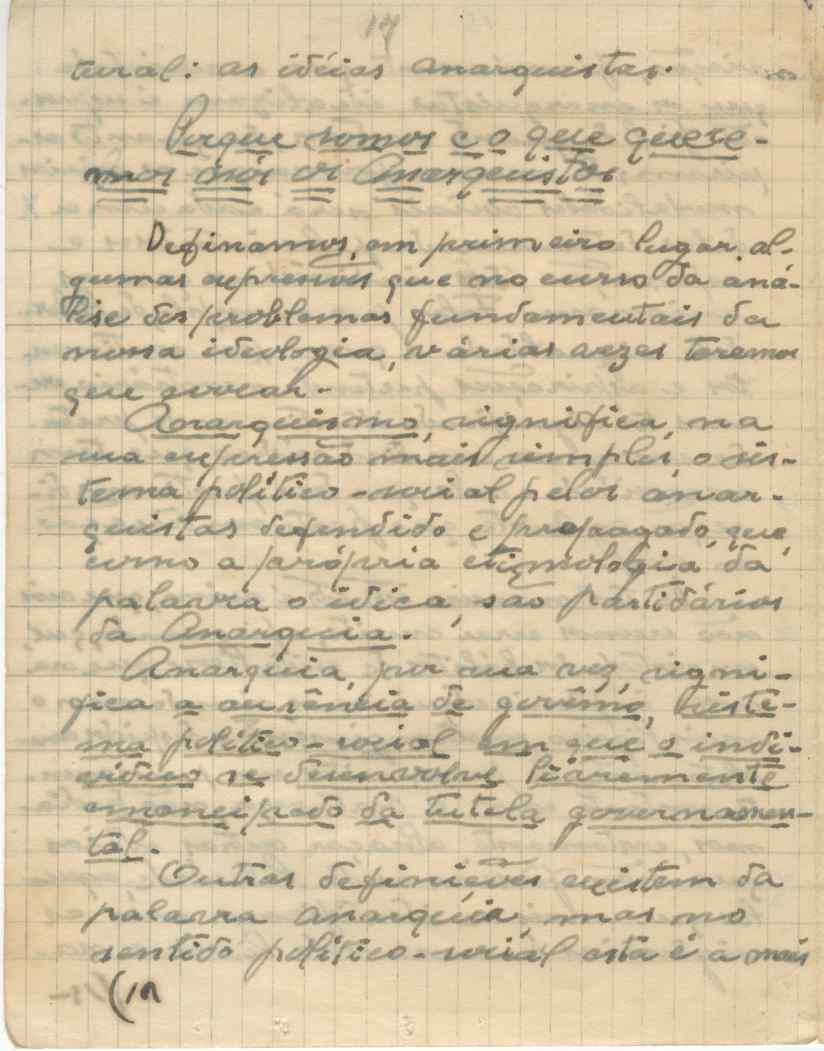 17
tural: as idéias anarquistas.
Porque somos e o que quere-
mos nós os Anarquistas
Definamos, em primeiro lugar, al-
gumas expressões que no curso da aná-
lise dos problemas fundamentais da
nossa ideologia, várias vezes teremos
que evocar.
Anarquismo, significa, na
sua expressão mais simples, o sis-
tema político-social pelos anar-
quistas defendido e propagado, que,
como a própria etimologia da
palavra o idica, são partidários
da Anarquia.
Anarquia, por sua vez, signi-
fica a ausência de govêrno, sistê-
ma político-social em que o indi-
víduo se desenvolve livremente
emancipado da tutela governamen-
tal.
Outras definições existem da
palavra anarquia, mas no
sentido político-social esta é a mais